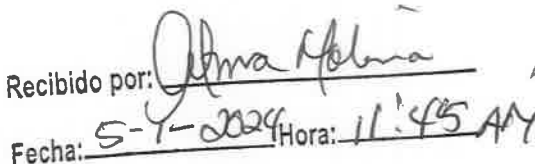 Recibido por: Alma Molina
Fecha: 5-7-2024 Hora: 11:45 AM